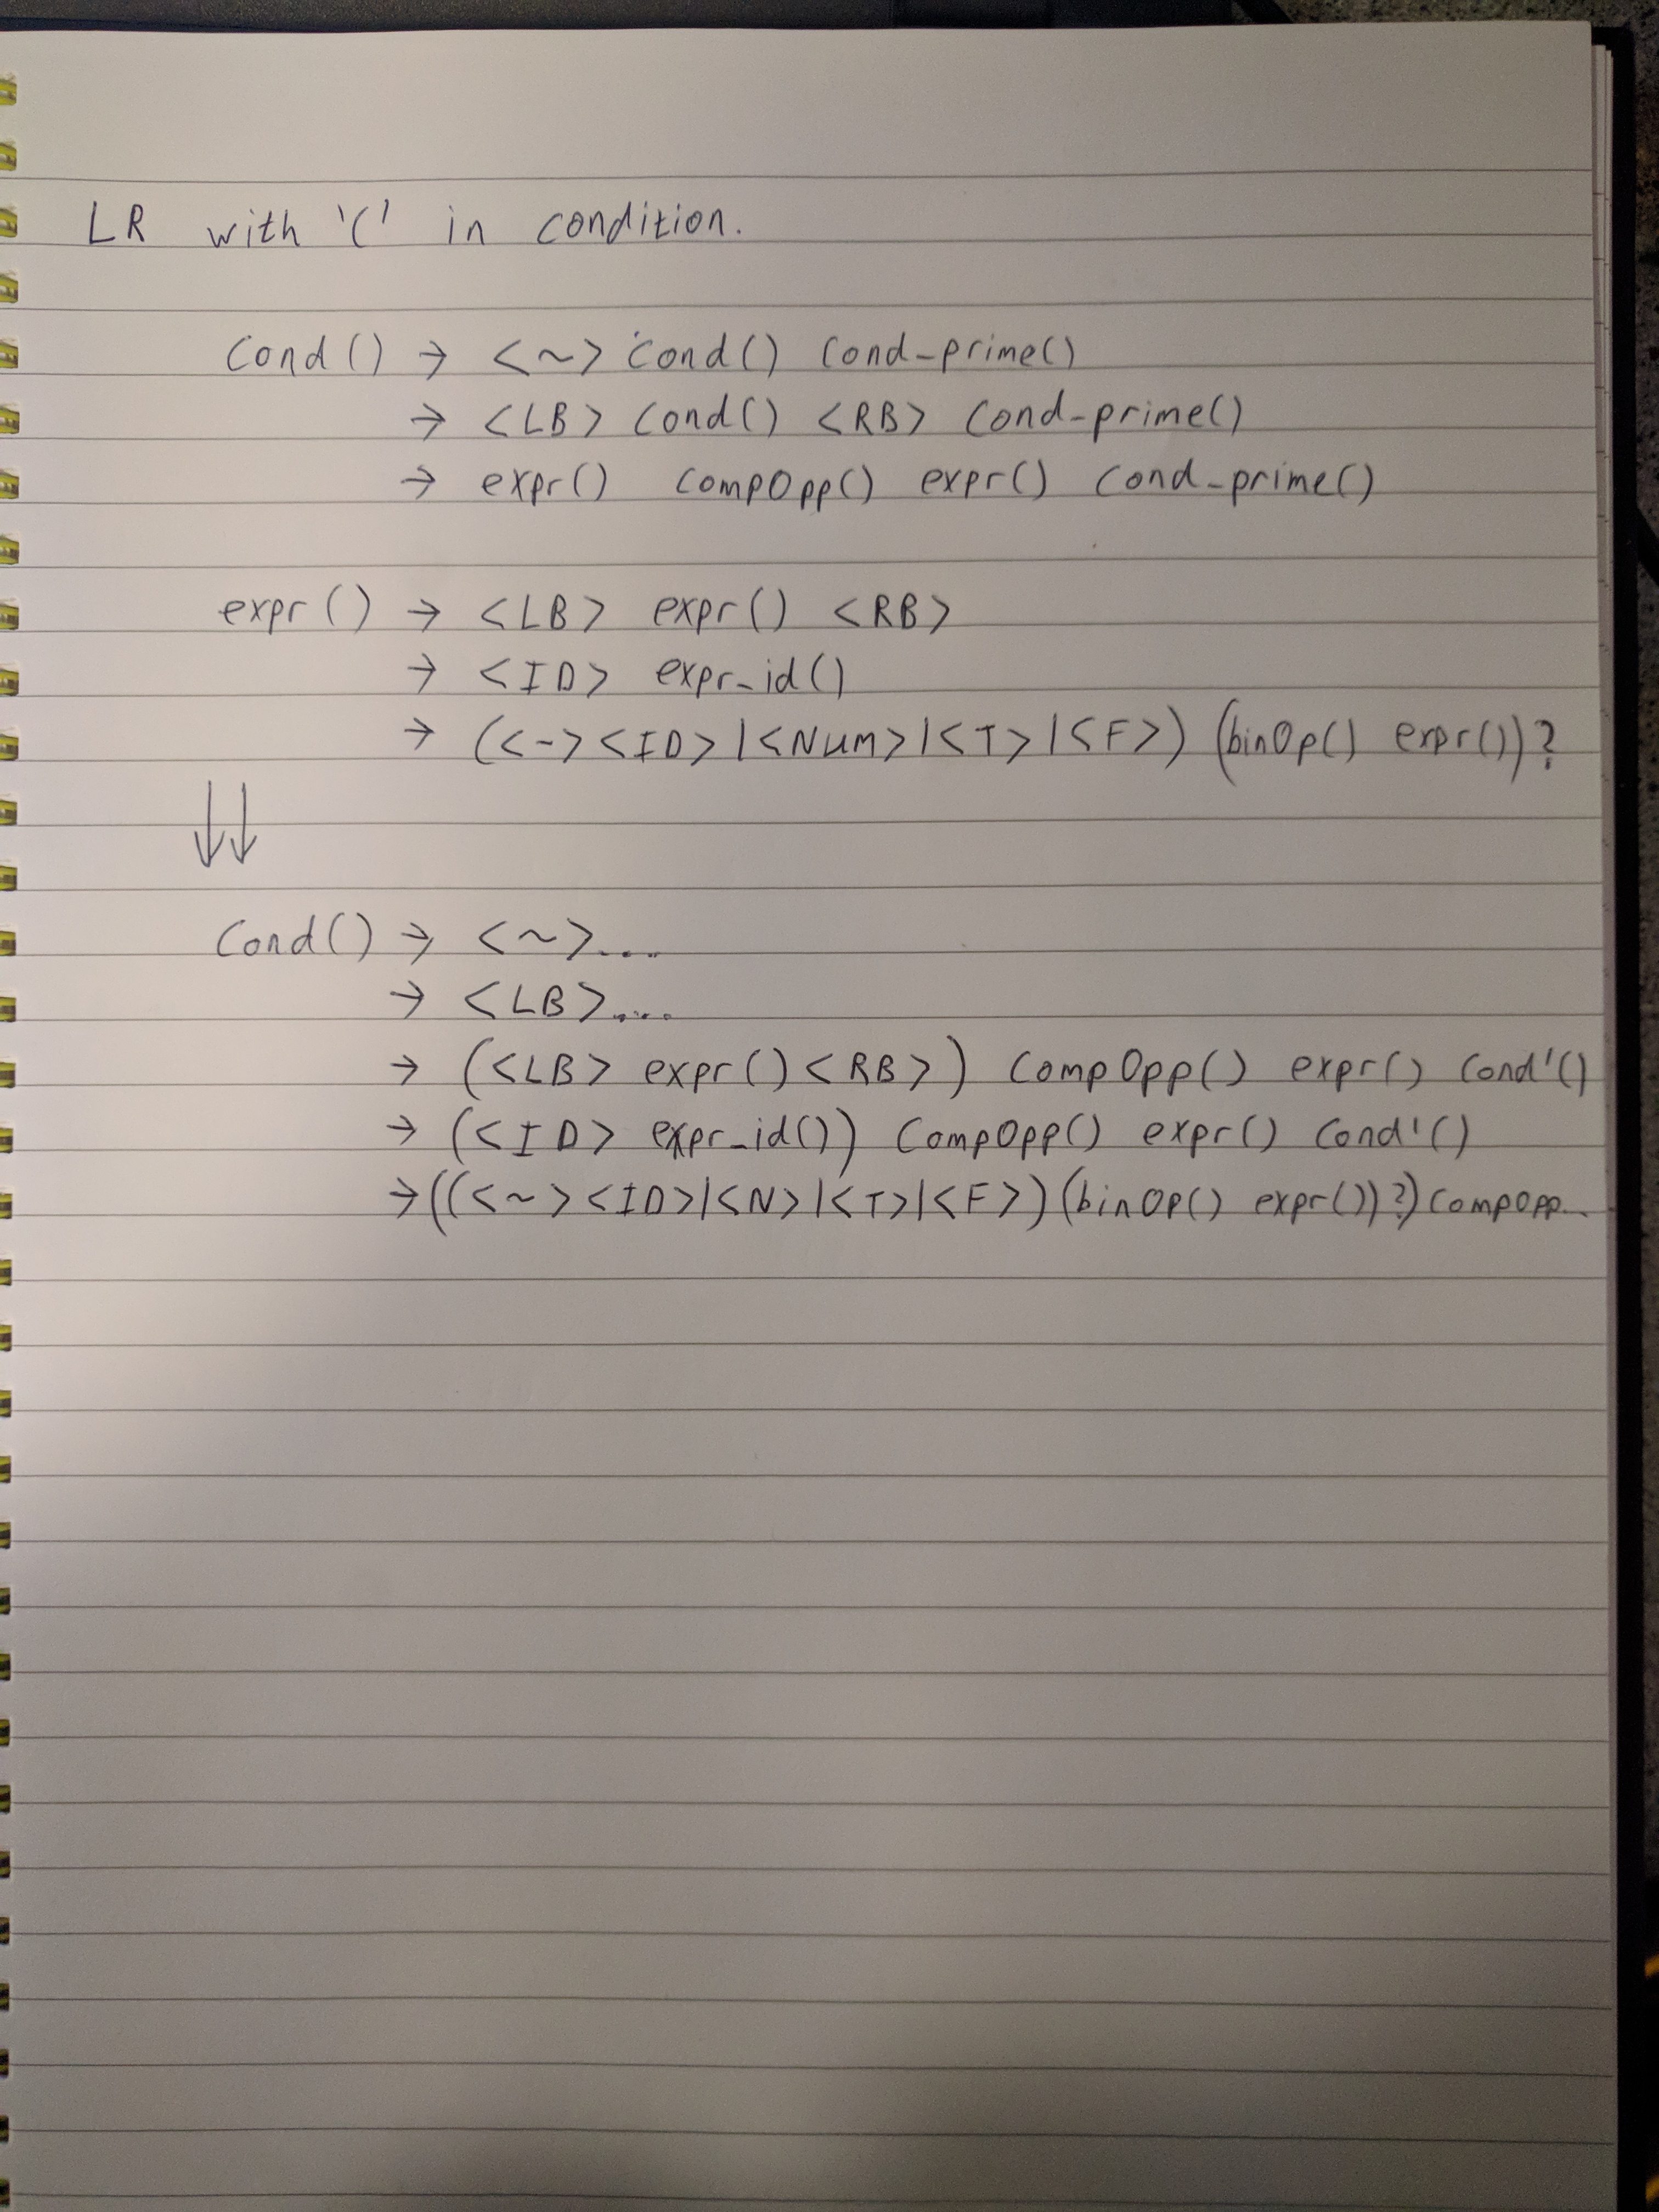 LR with '(' in condition.
Cond() → <~> cond() Cond_prime()
→ <LB> Cond() <RB> Cond_prime()
→ expr() CompOpp() expr() Cond_prime()
expr() → <LB> expr() <RB>
→ <ID> expr_id()
→ (<-><ID>|<Num>|<T>|<F>) (binOp() expr())?
↓↓
Cond() → <~>....
→ <LB>....
→ (<LB> expr()<RB>) CompOpp() expr() Cond'()
→ (<ID> expr_id()) CompOpp() expr() Cond'()
→ ((<~><ID>|<N>|<T>|<F>)(binOp() expr())?) CompOpp...